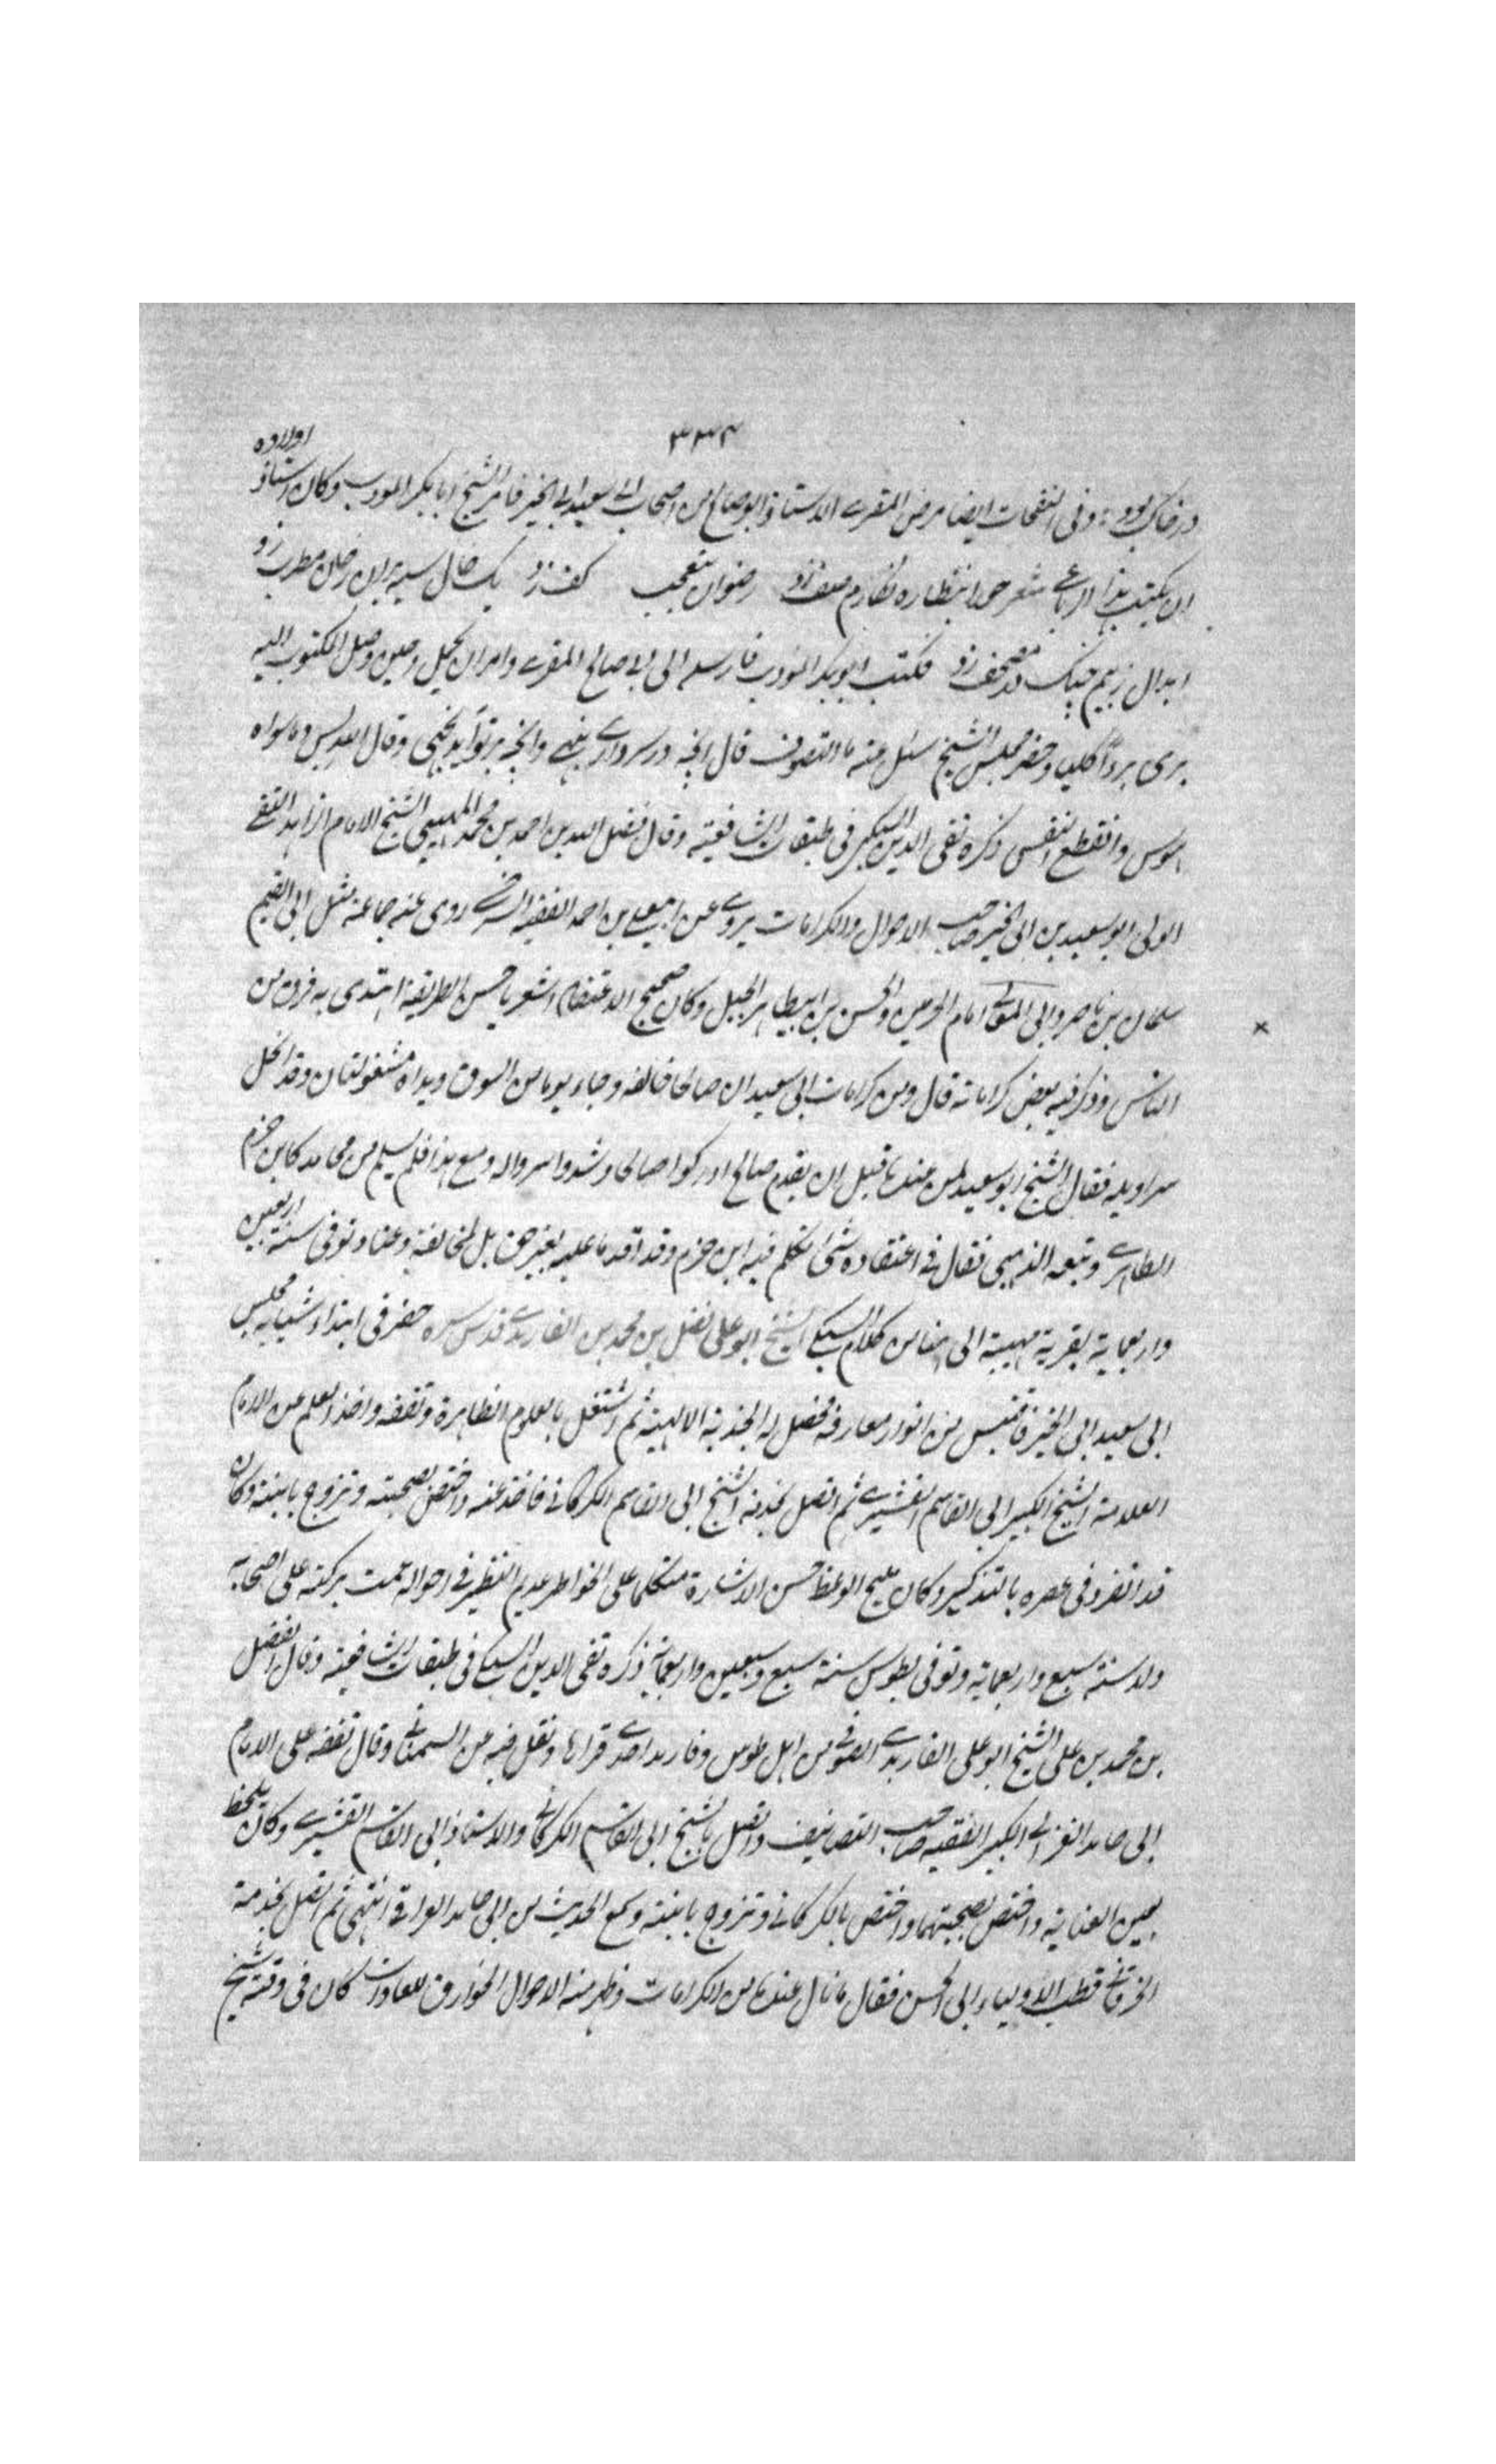 ٣٣٤
اولاده
در خاک بود وفی النفحات ایضا مرض المقری الاستاذ ابو صالح من اصحاب ابی سعید ابی الخیر فامر الشیخ ابا بکر المودب وکان استاذ
ان یکتب هذا الرباعی شعر حورا بنظاره نکارم صف زد رضوان بتعجب کف زد یک خال سیه بران رخان مطرب زد
ابدال زبیم چنک در مصحف زد فکتب ابو بکر المودب فارسله الی ابی صالح المقری وامر ان یحمل وحین وصل المکتوب الیه
بری بردا کلیا وحضر مجلس الشیخ سئل عنه ما التصوف قال انچه در سر داری بنهی وانچه بر تو آید نجهی وقال الله بس وماسواه
هوس وانقطع النفس ذکره تقی الدین السبکی فی طبقات الشافعیة وقال فضل الله بن احمد بن محمد المیهنی الشیخ الامام الزاهد التقی
الولی ابو سعید بن ابی الخیر صاحب الاحوال والکرامات یروی عن ابی علی بن احمد الفقیه السرخسی روی عنه جماعة مثل ابی القسم
سلمان بن ناصر وابی المعالی امام الحرمین والحسن بن ابی طاهر الجبل وکان صحیح الاعتقاد اشعریا حسن الطریقة اهتدی به فرق من
الناس وذکر فیه بعض کراماته قال ومن کرامات ابی سعید ان صالحا خالفه وجاء یوما من السوق ویداه مشغولتان وقد انحل
سراویله فقال الشیخ ابو سعید لمن عندنا قبل ان یقدم صالح ادرکوا صالحا وشدوا سرواله ومع هذا فلم یسلم من محامد کابن حزم
الظاهری وتبعه الذهبی فقال فی اعتقاده شئ تکلم فیه ابن حزم وقد اقدما علیه بغیر حق بل لمخالفة وعناد وتوفی سنة اربعین
واربعمایة بقریة میهنة الی هنا من کلام السبکی الشیخ ابو علی فضل بن محمد بن الفارمدی قدس سره حضر فی ابتداء شبابه مجلس
ابی سعید ابی الخیر فاقتبس من انوار معارفه فحصل له الجذبة الالهیة ثم اشتغل بالعلوم الظاهرة وتفقه واخذ العلم عن الامام
العلامة الشیخ الکبیر ابی القاسم القشیری ثم اتصل بخدمة الشیخ ابی القاسم الکرکانی فاخذ عنه واختص بصحبته وتزوج بابنته وکان
قد انفرد فی عصره بالتذکیر وکان ملیح الوعظ حسن الاشارة متکلما علی الخواطر عدیم النظیر فی احواله عمت برکته علی اصحابه
ولد سنة سبع واربعمایة وتوفی بطوس سنة سبع وسبعین واربعمایة ذکره تقی الدین السبکی فی طبقات الشافعیة وقال الفضل
بن محمد بن علی الشیخ ابو علی الفارمدی الصوفی من اهل طوس وفارمد احدی قراها ونقل فیه من السمعانی وقال تفقه علی الامام
ابی حامد الغزالی الکبیر الفقیه صاحب التصانیف واتصل بالشیخ ابی القاسم الکرکانی والاستاذ ابی القاسم القشیری وکان یلحظ
بعین العنایة واختص بصحبتهما واختص بالکرکانی وتزوج بابنته وسمع الحدیث من ابی حامد الغزالی انتهی ثم اتصل بخدمة
الخرقانی قطب الاولیاء ابی الحسن فقال ما نال عنده من الکرامات وظهر منه الاحوال الخوارق للعادات کان فی وقته شیخ